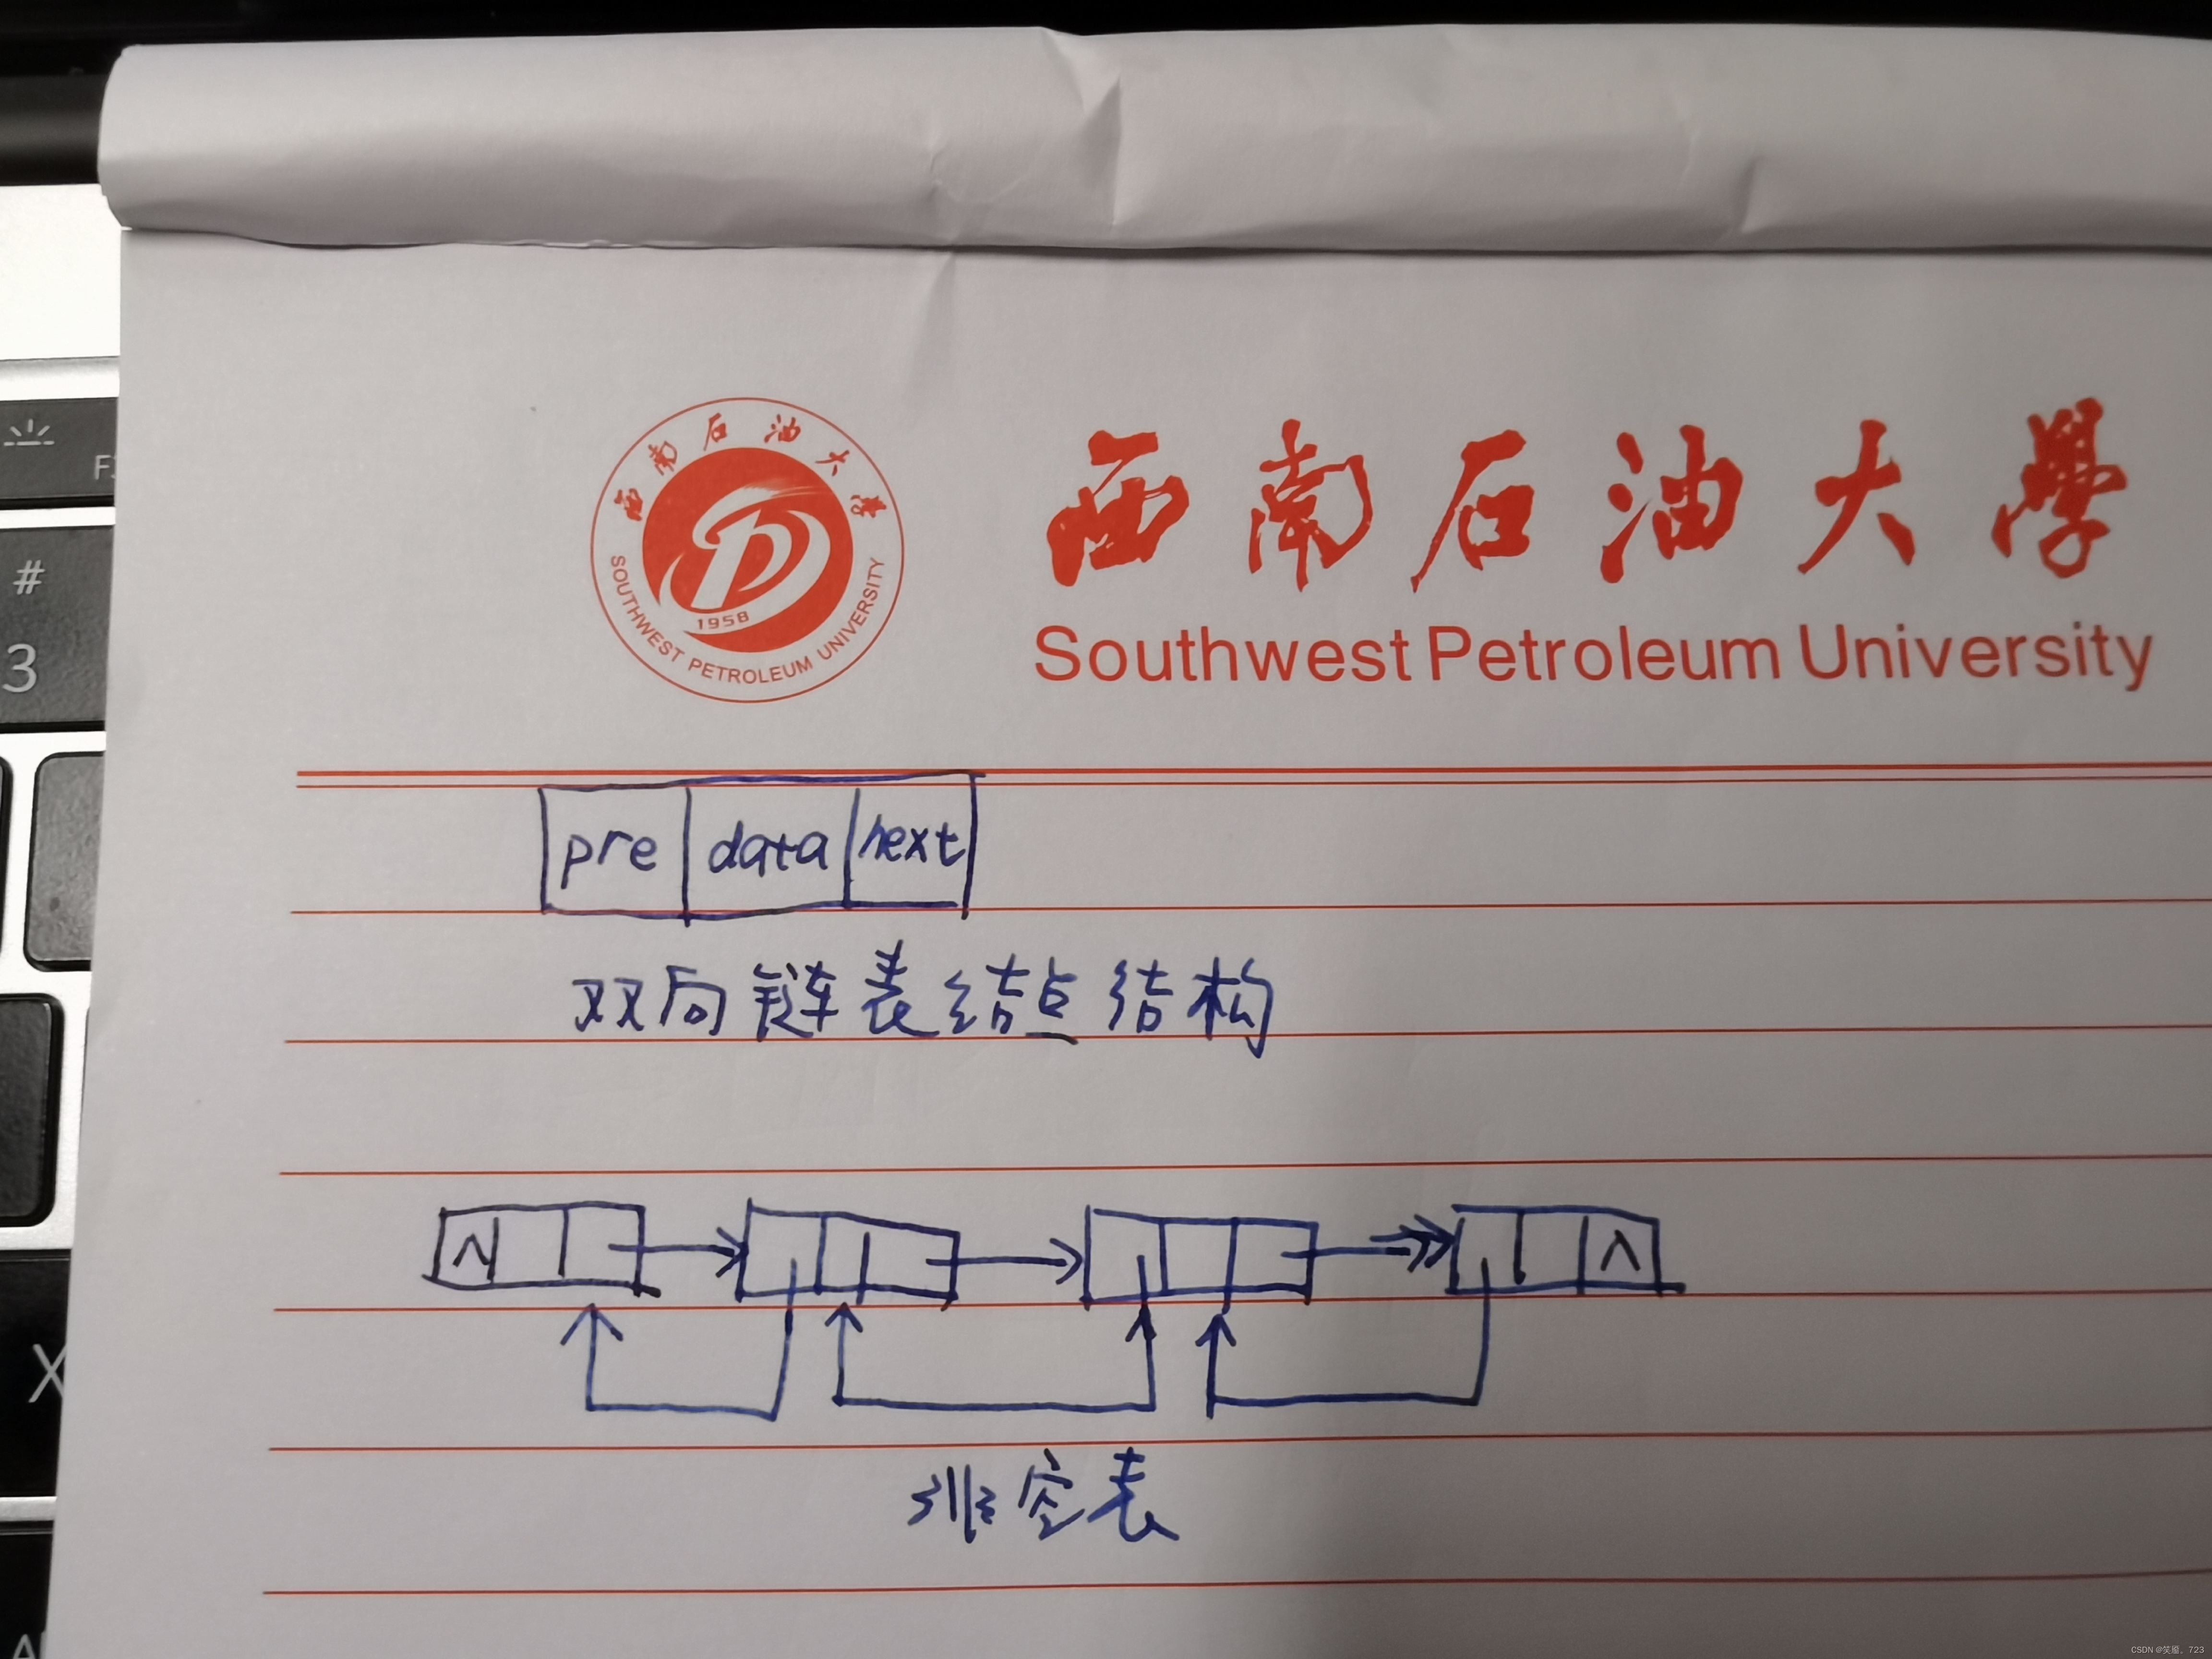 F
#
3
X
A
西南石油大學
1958
SOUTHWEST PETROLEUM UNIVERSITY
西南石油大學
Southwest Petroleum University
pre data next
双向链表结点结构
Λ Λ
非空表
CSDN @笑靥。723